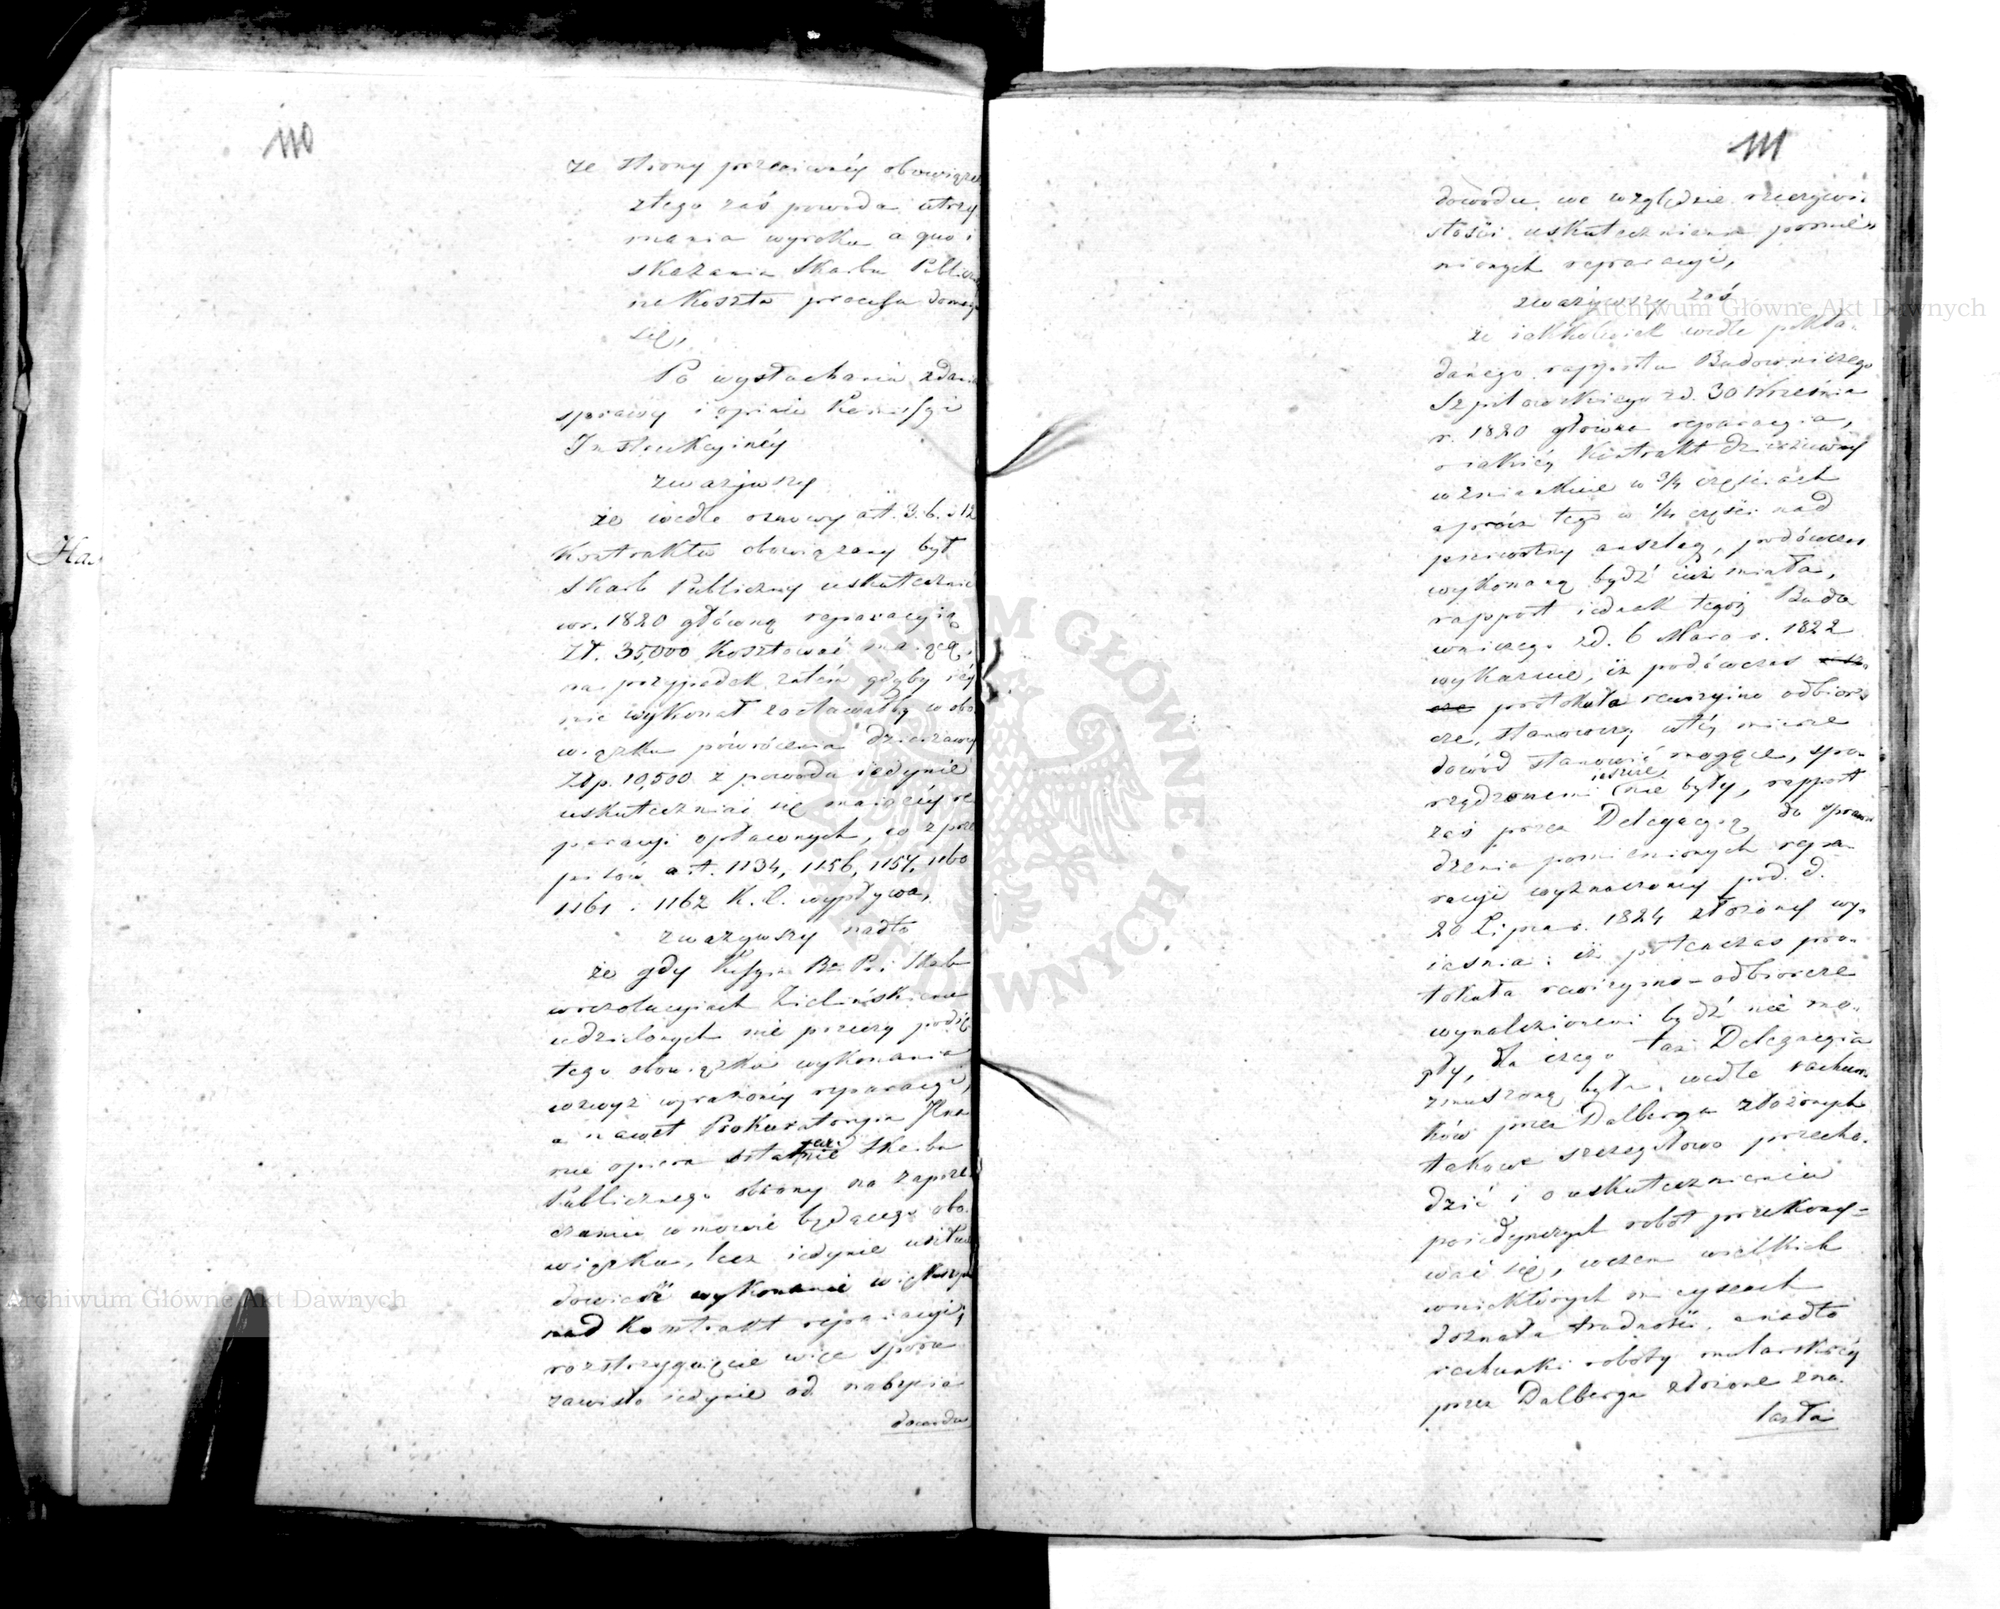 110
ze strony przeciwnéy obowiąze
złego zaś powoda utrzy
mania wyroku a quo i
skazania Skarbu Publicz
na koszta processu doma
się,
Po wysłuchaniu zdania
sprawy i opinii Kommissyi
Instrukcyinéy
zważywszy
że wedle osnowy art. 3. 6. i 12
Kontraktu obowiązany był
Skarb Publiczny uskutecznić
w r. 1820 główną reparacyią
Zł. 35,000 kosztować maiącą,
na przypadek zatém gdyby iéy
nie wykonał zostawałby w obo
wiązku powrócenia dzierżawcy
Złp. 10,500 z powodu iedynie
uskuteczniać się maiącéy re
peracyi opłaconych, co z prze
pisów art. 1134, 1156, 1157, 1160
1161 i 1162 K. C. wypływa,
zważywszy nadto
że gdy Kssya Rz. P. i Skarb
w rezolucyiach Zielińskiemu
udzielonych nie przeczy podię
tego obowiązku wykonania
wzwyż wyrażonéy reparacyi,
a nawet Prokuratorya Jlna
nie opiera ostatecznie Skarbu
Publicznego obrony na zaprze
czeniu w mowie będącego obo
wiązku, lecz iedynie usiłuie
dowieść wykonanie większych
nad kontrakt reparacyi,
rozstrzygnięcie więc sporu
zawisło iedynie od nabycia
dowodu
Ha
111
dowodu we względzie rzeczywi
stości uskutecznienia pomie
nionych reparacyi,
zważywszy zaś
że iakkolwiek wedle pokła
danego rapportu Budowniczego
Szpilowskiego z d. 30 Września
r. 1820 główna reparacyia,
o iakiéy Kontrakt dzierżawny
wzmiankuie w 3/4 częściach
a prócz tego w 1/4 części nad
pierwotny anszlag, podówczas
wykonaną bydź iuż miała,
rapport iednak tegoż Budo
wniczego z d. 6 Marca r. 1822
wykazuie, iż podówczas
protokuła rewizyino odbior
cze, stanowczy w téy mierze
dowód stanowić mogące, spo
rządzonemi ieszcze nie były, rapport
zaś przez Delegacyą do spraw
dzenia pomienionych repa
racyi wyznaczoney pod d.
20 Lipca r. 1824 złożony wy
iaśnia: iż potenczas pro
tokuła rewizyino-odbiorcze
wynalezionemi bydź nie mo
gły, dla czego taż Delegacyia
zmuszoną była, wedle rachun
ków przez Dalberga złożonych
takowe szczegułowo przecho
dzić i o uskutecznieniu
poiedynczych robót przekony=
wać się, w czem wielkich
w niektórych mieyscach
doznała trudności, a nadto
rachunki roboty mularskiéy
przez Dalberga złożone zna
lazła